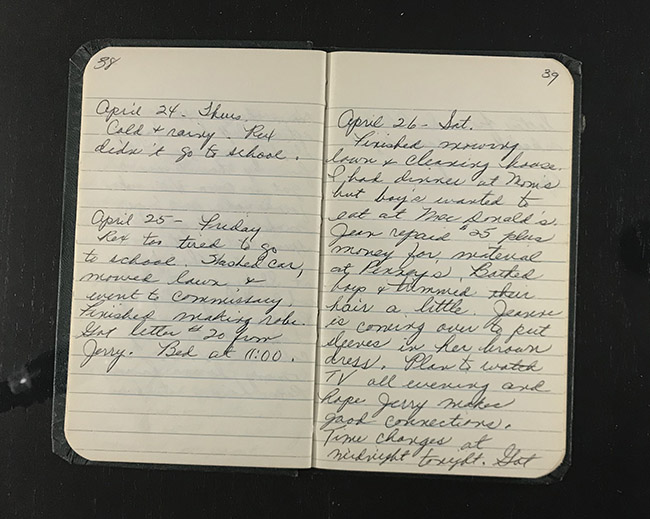 38
April 24 - Thurs.
Cold + rainy. Rex
didn't go to school.
April 25 - Friday
Rex too tired to go
to school. Washed car,
mowed lawn, &
went to commissary,
Finished making robe.
Got letter # 20 from
Jerry. Bed at 11:00.
39
April 26 - Sat.
Finished mowing
lawn & cleaning house.
I had dinner at Mom's
but boy's wanted to
eat at Mac Donald's.
Jean repaid $25 plus
money for material
at Penney's. Bathed
boys & trimmed their
hair a little. Jeanne
is coming over to put
sleeves in her brown
dress. Plan to watch
TV all evening and
hope Jerry makes
good connections.
Time changes at
midnight tonight. Got